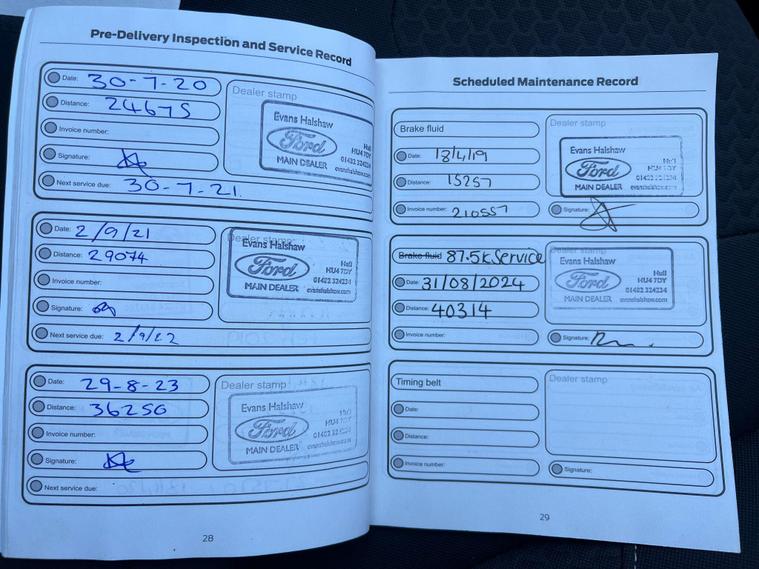 Pre-Delivery Inspection and Service Record
Date: 30-7-20
Distance: 24675
Invoice number:
Signature:
Next service due: 30-7-21.
Dealer stamp
Evans Halshaw
Ford
Hull
HU4 7DY
01482 324234
MAIN DEALER evanshalshaw.com
Date: 2/9/21
Distance: 29074
Invoice number:
Signature:
Next service due: 2/9/22
Dealer stamp
Evans Halshaw
Ford
Hull
HU4 7DY
01482 324234
MAIN DEALER evanshalshaw.com
Date: 29-8-23
Distance: 36250
Invoice number:
Signature:
Next service due:
Dealer stamp
Evans Halshaw
Ford
HU4 7DY
MAIN DEALER evanshalshaw.com
28
Scheduled Maintenance Record
Brake fluid
Date: 18/4/19
Distance: 15257
Invoice number: 210557
Dealer stamp
Evans Halshaw
Ford
Hull
HU4 7DY
MAIN DEALER evanshalshaw.com
Signature:
Brake fluid 87.5k Service
Date: 31/08/2024
Distance: 40314
Invoice number:
Dealer stamp
Evans Halshaw
Ford
Hull
HU4 7DY
01482 324234
MAIN DEALER evanshalshaw.com
Signature:
Timing belt
Date:
Distance:
Invoice number:
Dealer stamp
Signature:
29